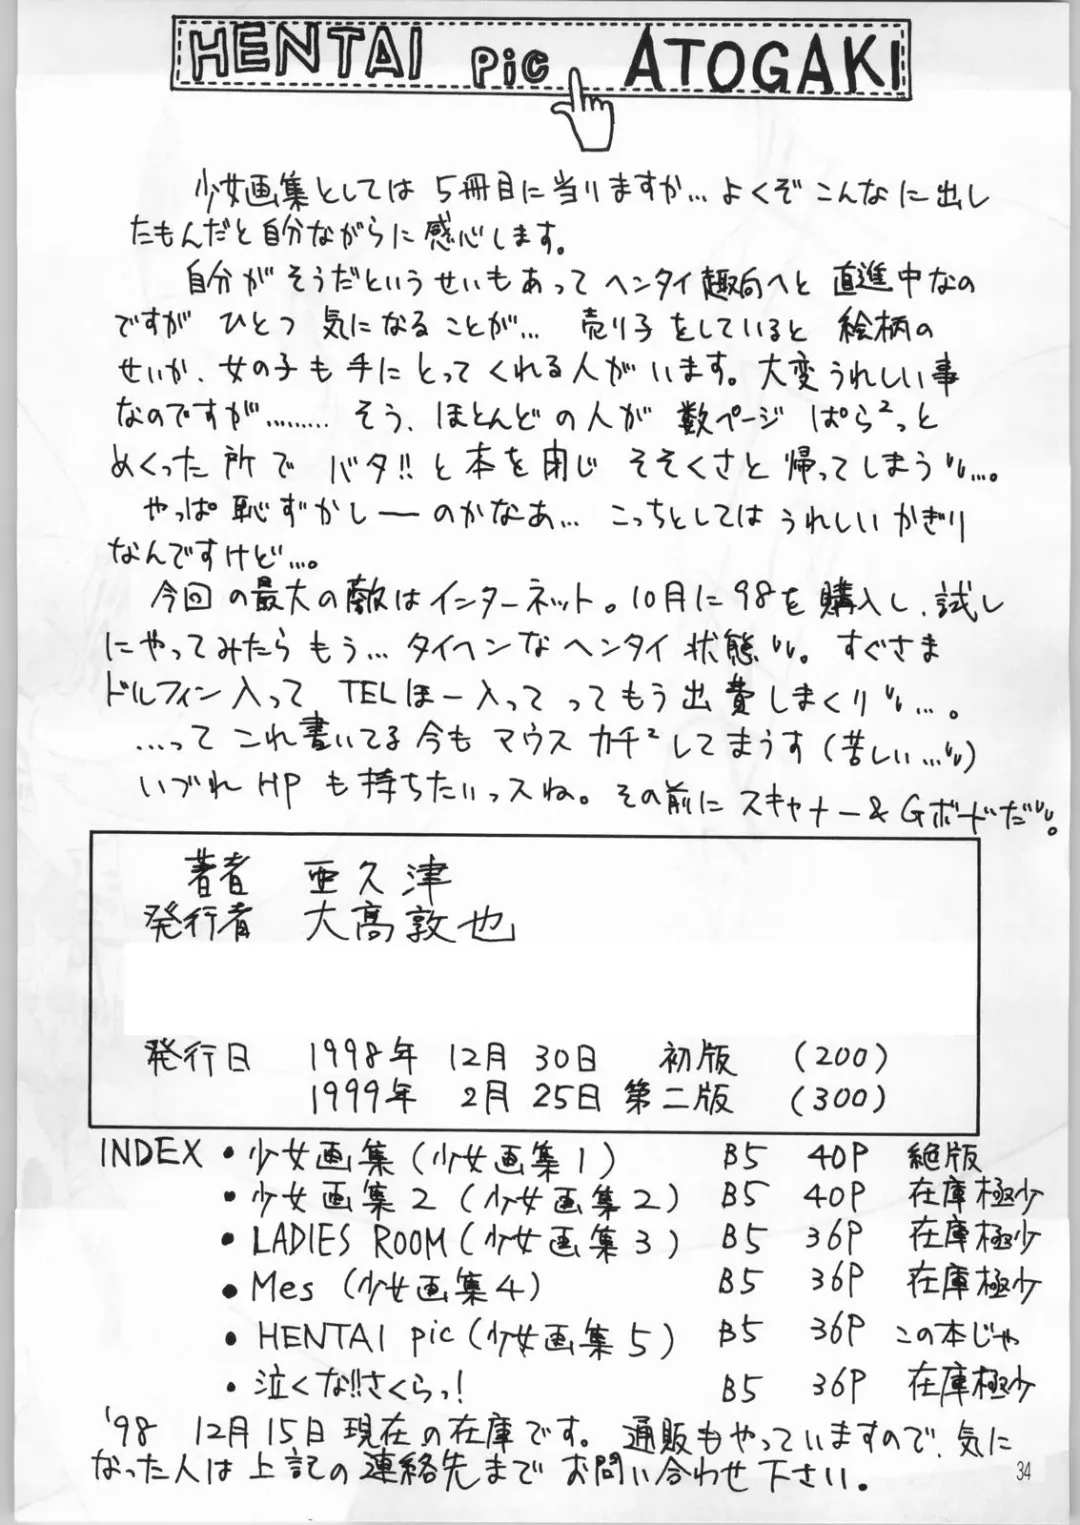 HENTAI pic ATOGAKI
少女画集としては5冊目に当りますか…よくぞこんなに出し
たもんだと自分ながらに感心します。
自分がそうだというせいもあってヘンタイ趣向へと直進中なの
ですがひとつ気になることが…売り子をしていると絵柄の
せいか、女の子も手にとってくれる人がいます。大変うれしい事
なのですが………そう、ほとんどの人が数ページぱら²っと
めくった所でバタ!!と本を閉じそそくさと帰ってしまう…。
やっぱ恥ずかしーのかなあ…こっちとしてはうれしいかぎり
なんですけど…。
今回の最大の敵はインターネット。10月に98を購入し、試し
にやってみたらもう…タイヘンなヘンタイ状態。すぐさま
ドルフィン入ってTELほー入ってってもう出費しまくり…。
…ってこれ書いてる今もマウスカチ²してまうす(苦しい…)
いづれHPも持ちたいっスね。その前にスキャナー&Gボードだ。
著者 亜久津
発行者 大高敦也
発行日 1998年 12月 30日 初版 (200)
1999年 2月 25日 第二版 (300)
INDEX ・少女画集(少女画集1) B5 40P 絶版
・少女画集2(少女画集2) B5 40P 在庫極少
・LADIES ROOM(少女画集3) B5 36P 在庫極少
・Mes(少女画集4) B5 36P 在庫極少
・HENTAI pic(少女画集5) B5 36P この本じゃ
・泣くな!!さくらっ! B5 36P 在庫極少
'98 12月15日現在の在庫です。通販もやっていますので、気に
なった人は上記の連絡先までお問い合わせ下さい。
34